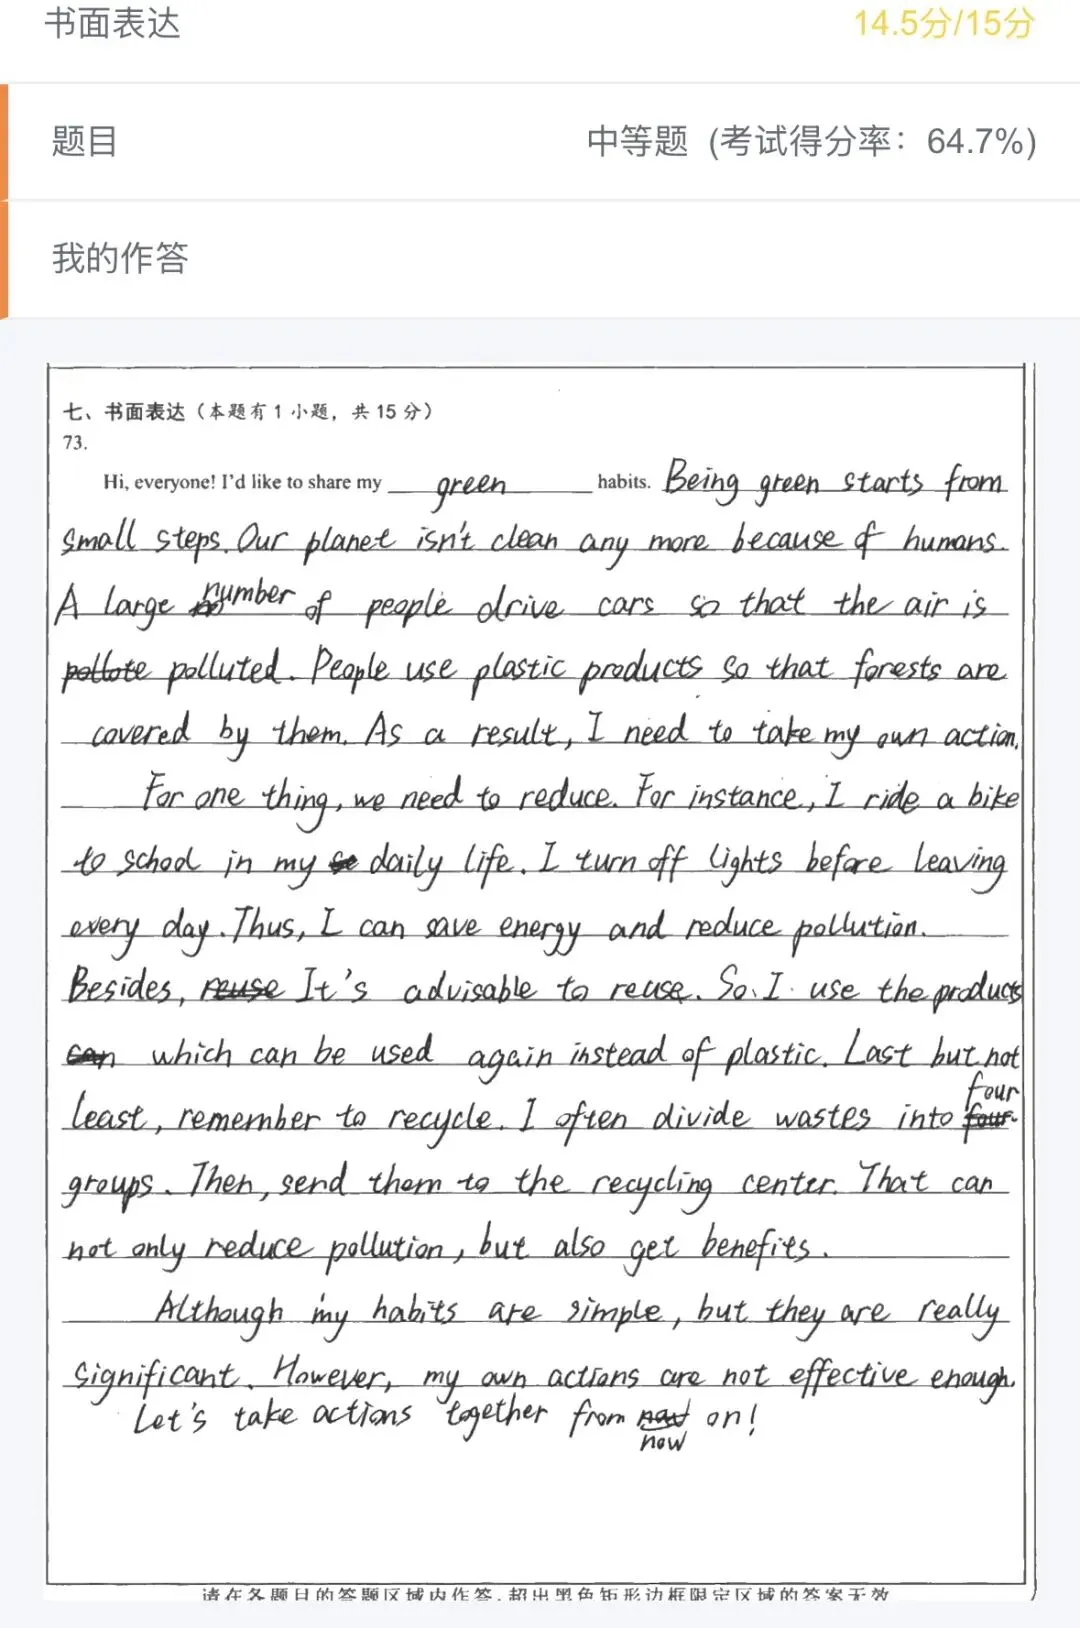 书面表达 14.5分/15分
题目 中等题 (考试得分率：64.7%)
我的作答
七、书面表达（本题有1小题，共15分）
73.
Hi, everyone! I'd like to share my green habits. Being green starts from
small steps. Our planet isn't clean any more because of humans.
A large number of people drive cars so that the air is
pollote polluted. People use plastic products so that forests are
covered by them. As a result, I need to take my own action.
For one thing, we need to reduce. For instance, I ride a bike
to school in my se daily life. I turn off lights before leaving
every day. Thus, I can save energy and reduce pollution.
Besides, reuse It's advisable to reuse. So, I use the products
can which can be used again instead of plastic. Last but not
least, remember to recycle. I often divide wastes into four four
groups. Then, send them to the recycling center. That can
not only reduce pollution, but also get benefits.
Although my habits are simple, but they are really
significant. However, my own actions are not effective enough.
Let's take actions together from now on!
请在各题目的答题区域内作答，超出黑色矩形边框限定区域的答案无效